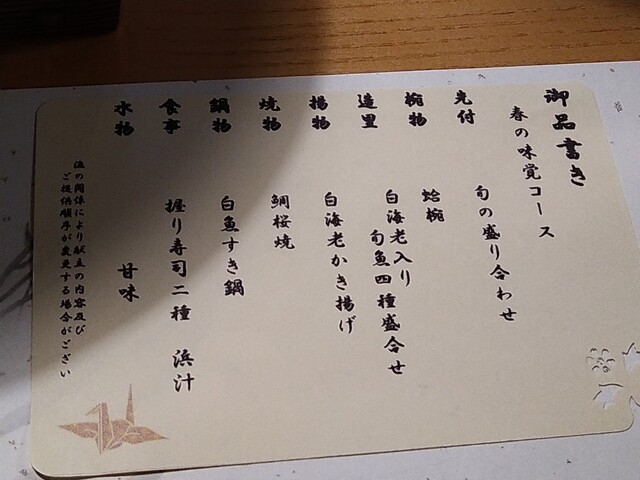 御品書き
春の味覚コース
先付 旬の盛り合わせ
椀物 蛤椀
造里 白海老入り
旬魚四種盛合せ
揚物 白海老かき揚げ
焼物 鯛桜焼
鍋物 白魚すき鍋
食事 握り寿司二種 浜汁
水物 甘味
漁の関係により献立の内容及び
ご提供順序が変更する場合がござい